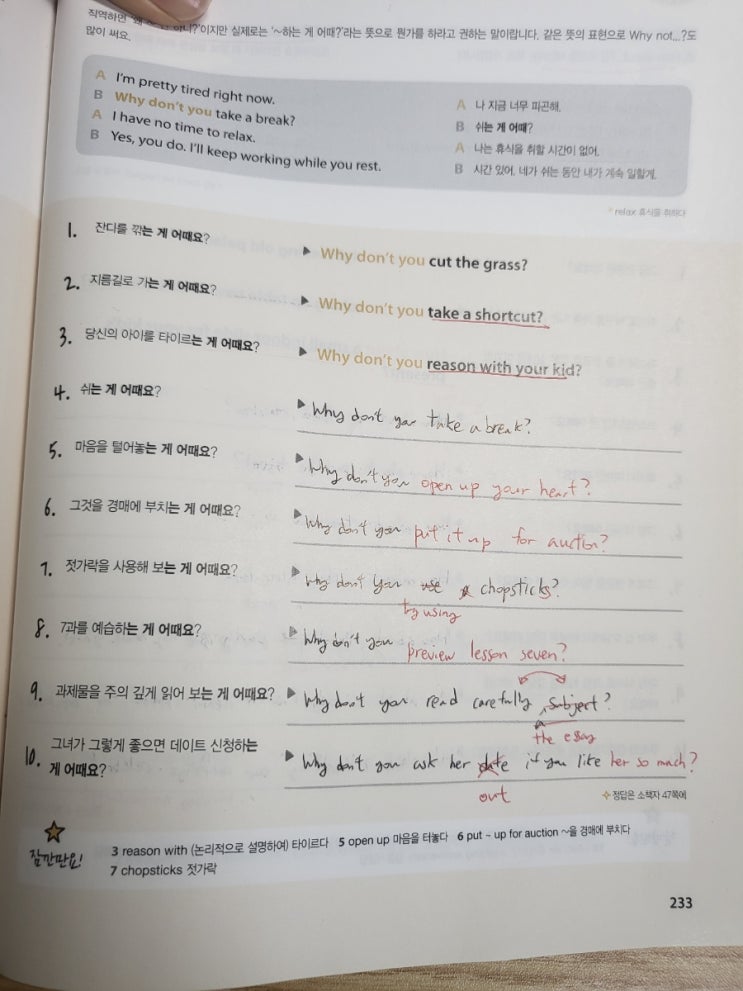 직역하면 '왜 하니?'이지만 실제로는 '~하는 게 어때?'라는 뜻으로 뭔가를 하라고 권하는 말이랍니다. 같은 뜻의 표현으로 Why not...?도
많이 써요.
A I'm pretty tired right now.
B Why don't you take a break?
A I have no time to relax.
B Yes, you do. I'll keep working while you rest.
A 나 지금 너무 피곤해.
B 쉬는 게 어때?
A 나는 휴식을 취할 시간이 없어.
B 시간 있어. 네가 쉬는 동안 내가 계속 일할게.
* relax 휴식을 취하다
1. 잔디를 깎는 게 어때요?
▶ Why don't you cut the grass?
2. 지름길로 가는 게 어때요?
▶ Why don't you take a shortcut?
3. 당신의 아이를 타이르는 게 어때요?
▶ Why don't you reason with your kid?
4. 쉬는 게 어때요?
▶ Why don't you take a break?
5. 마음을 털어놓는 게 어때요?
▶ Why don't you open up your heart?
6. 그것을 경매에 부치는 게 어때요?
▶ Why don't you put it up for auction?
7. 젓가락을 사용해 보는 게 어때요?
▶ Why don't you use chopsticks?
try using
8. 7과를 예습하는 게 어때요?
▶ Why don't you preview lesson seven?
9. 과제물을 주의 깊게 읽어 보는 게 어때요?
▶ Why don't you read carefully subject?
the essay
10. 그녀가 그렇게 좋으면 데이트 신청하는
게 어때요?
▶ Why don't you ask her date if you like her so much?
out
정답은 소책자 47쪽에
잠깐만요!
3 reason with (논리적으로 설명하여) 타이르다 5 open up 마음을 터놓다 6 put ~ up for auction ~을 경매에 부치다
7 chopsticks 젓가락
233